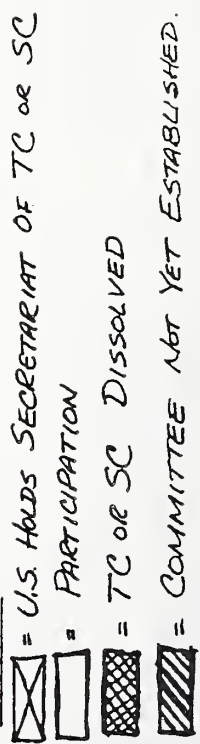 = U.S. HOLDS SECRETARIAT OF TC OR SC
= PARTICIPATION
= TC OR SC DISSOLVED
= COMMITTEE NOT YET ESTABLISHED.